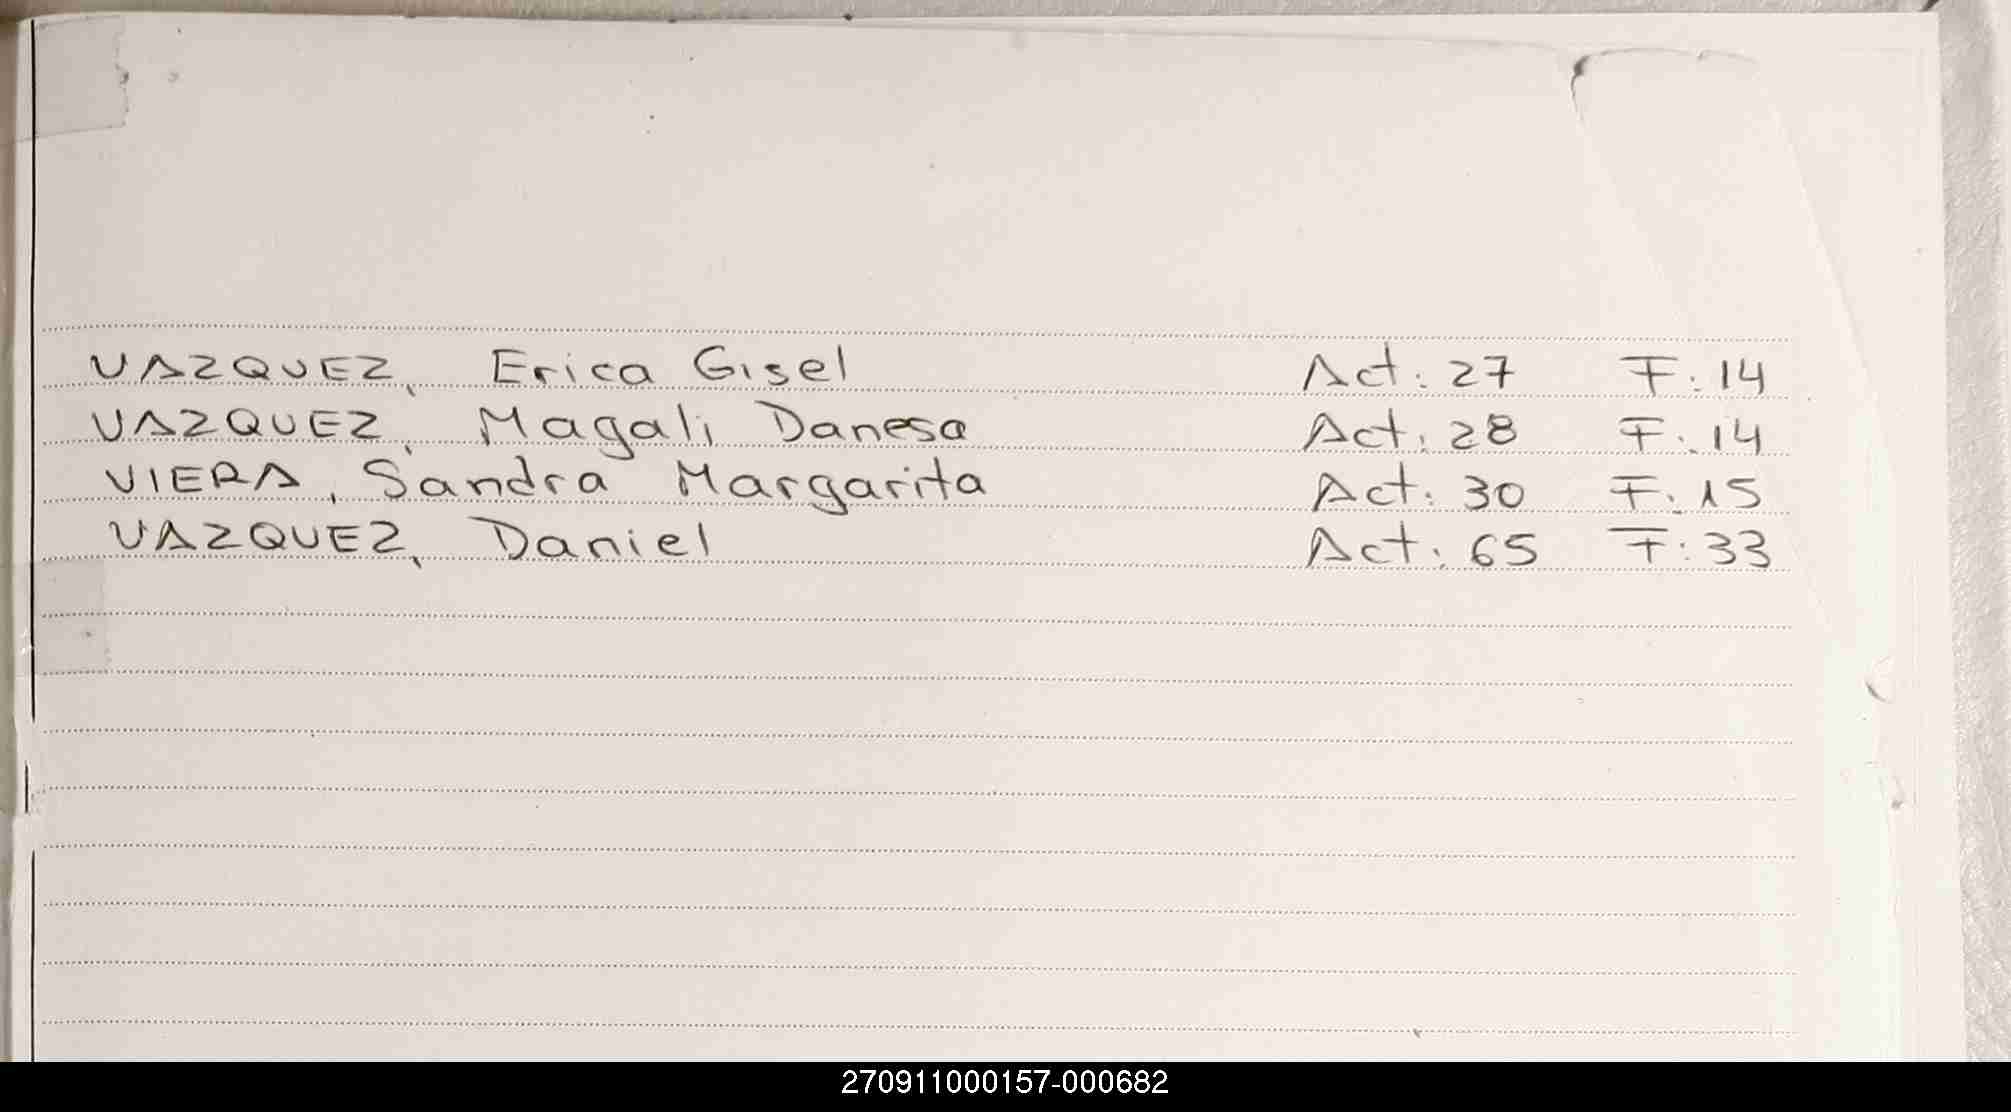 VAZQUEZ, Erica Gisel Act: 27 F: 14
VAZQUEZ, Magali Danesa Act: 28 F: 14
VIERA, Sandra Margarita Act: 30 F: 15
VAZQUEZ, Daniel Act: 65 F: 33
270911000157-000682